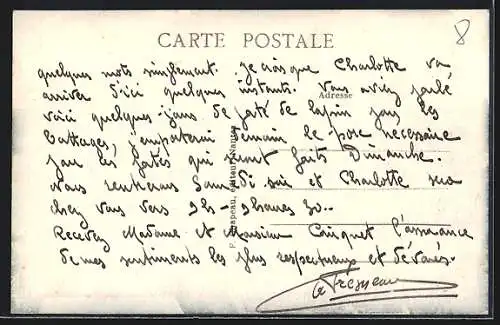 8
CARTE POSTALE
quelques mots simplement. Je crois que Charlotte va
arriver d'ici quelques instants. Vous aviez parlé
Adresse
voici quelques jours de paté de lapin pour les
battages, j'emporterai demain le porc necessaire
pour les patés qui seront faits Dimanche.
Nous rentrerons Samedi soir et Charlotte sera
chez vous vers 9h - 9heures 30 -
Recevez Madame et Monsieur l'assurance
de mes sentiments les plus respectueux et dévoués.
édit. Nantes